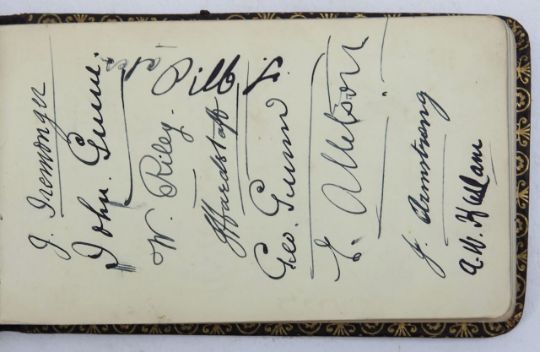 J. Iremonger
John. Gunn.
W. Riley.
J Hardstaff
Geo. Gunn
E. Alletson
J. Armstrong
A. W. Hallam